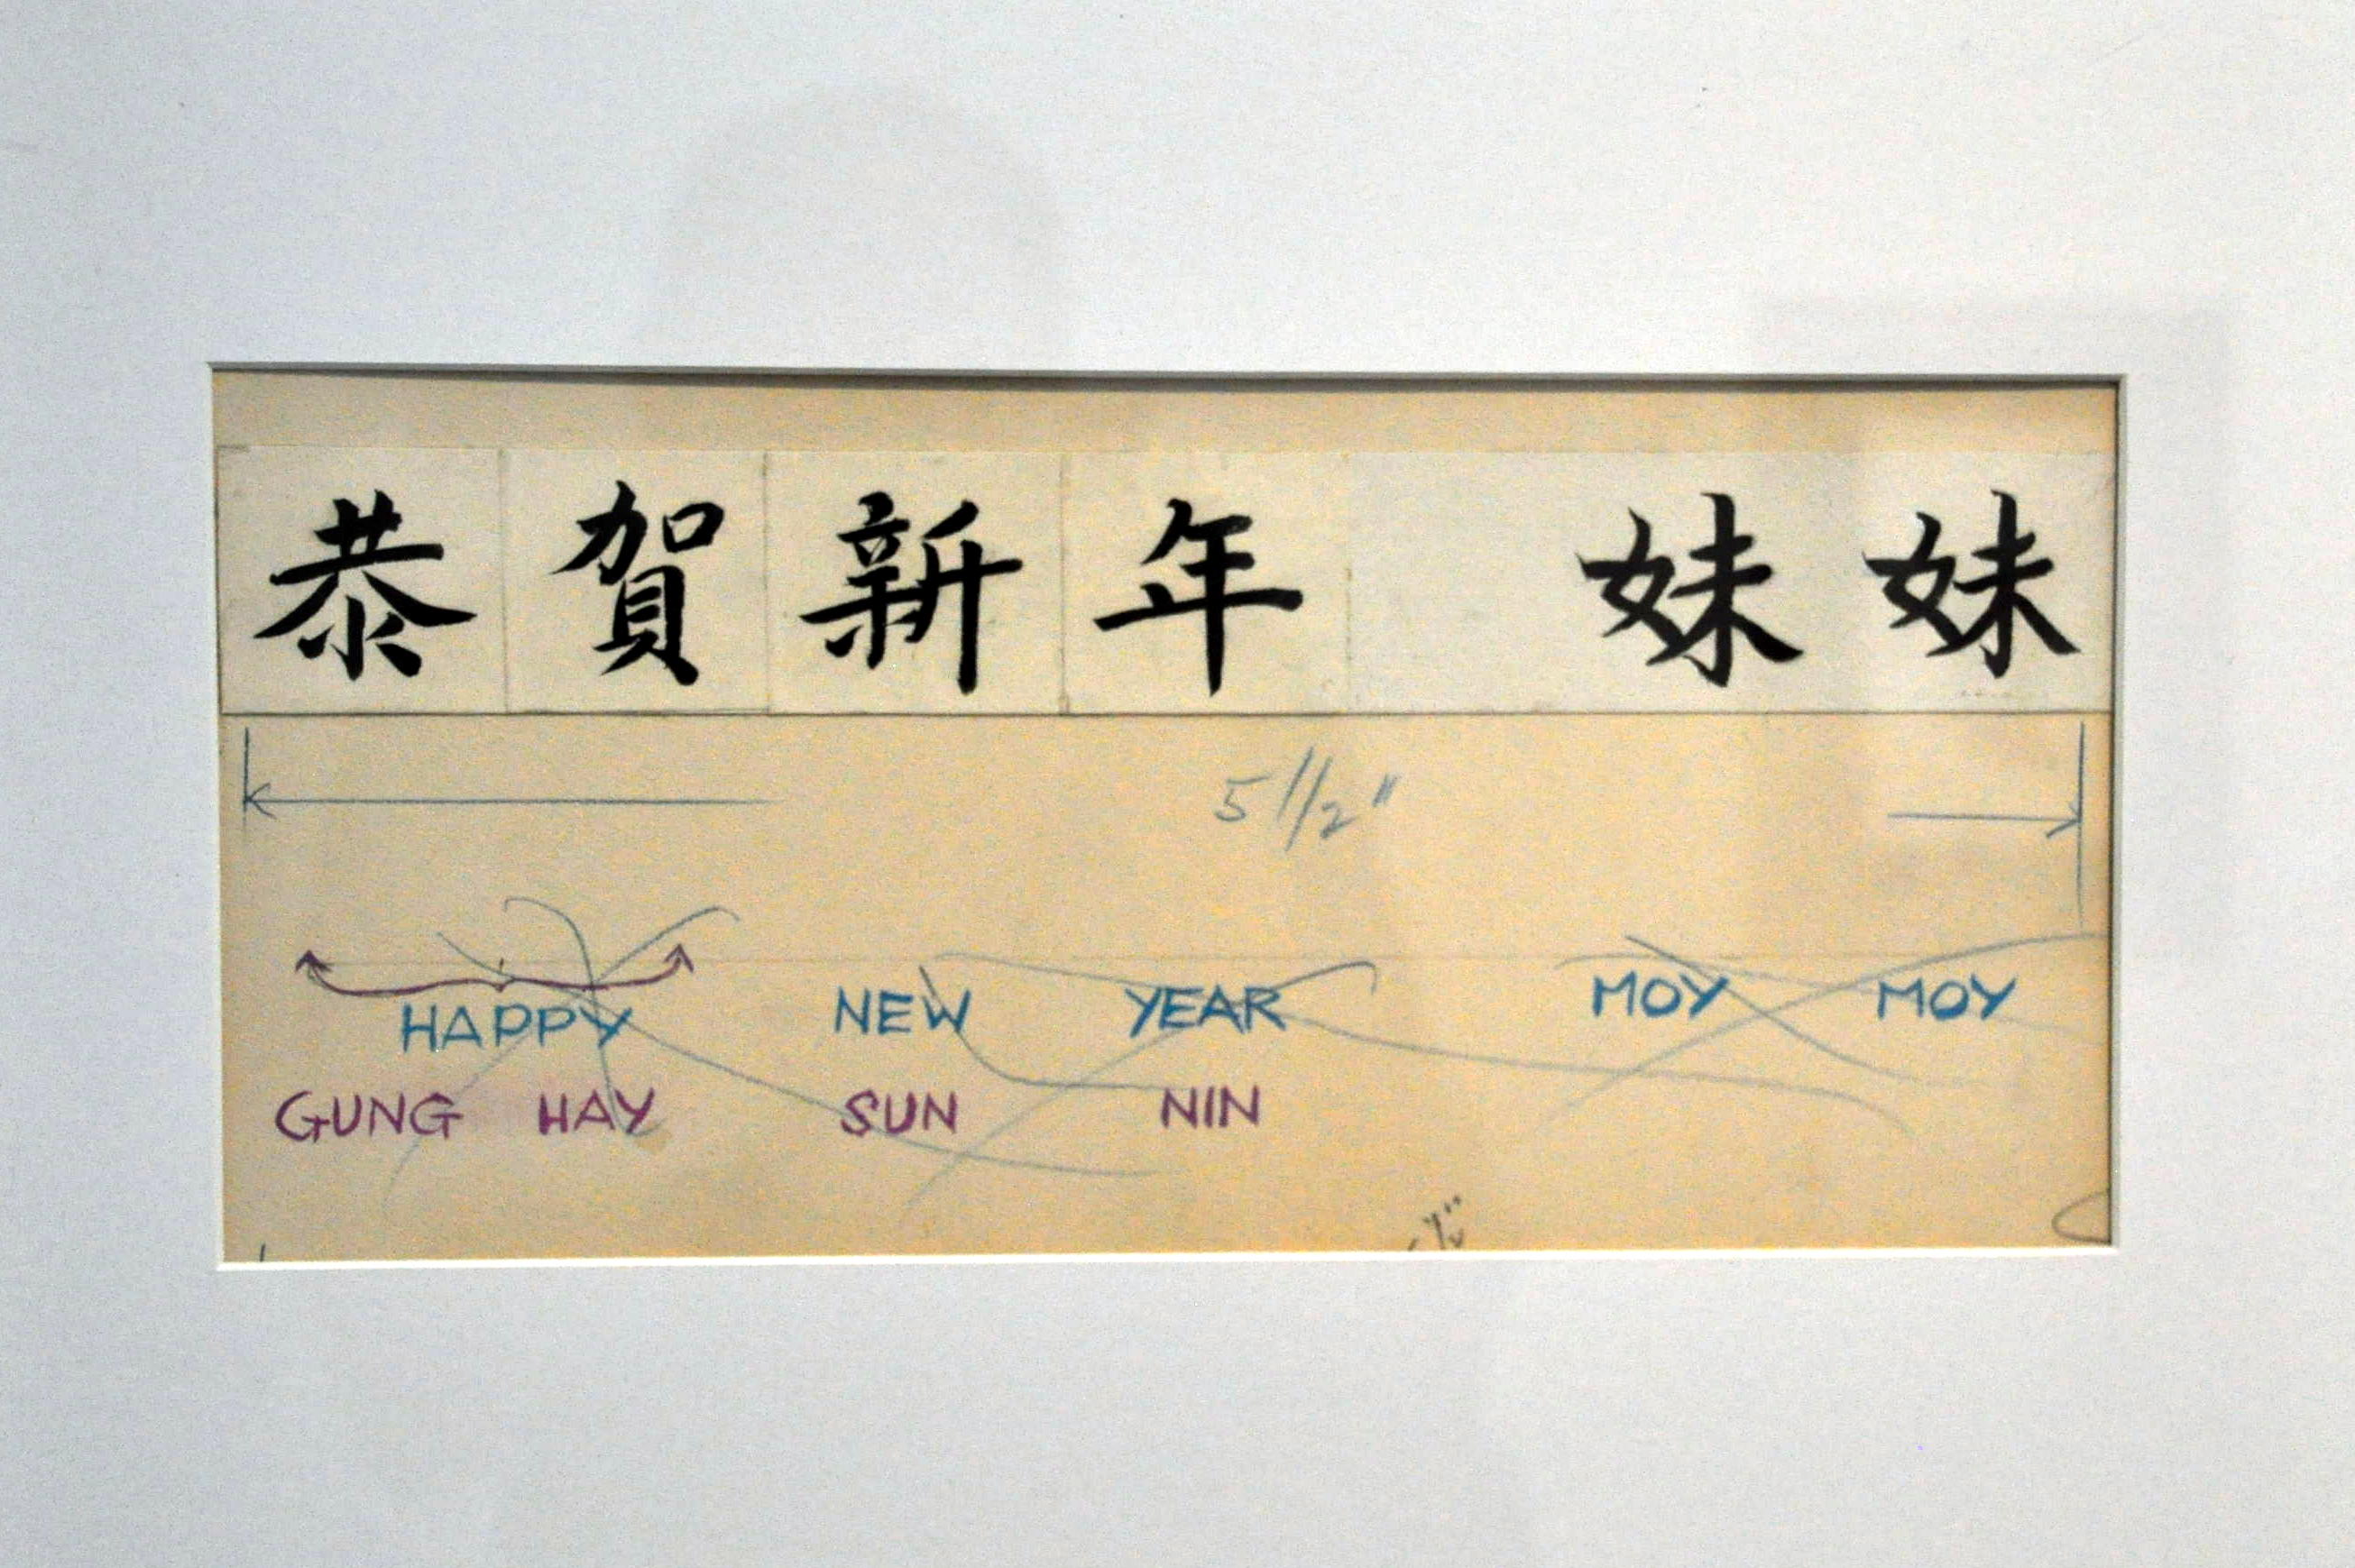 恭賀新年 妹妹
5 1/2"
HAPPY NEW YEAR MOY MOY
GUNG HAY SUN NIN